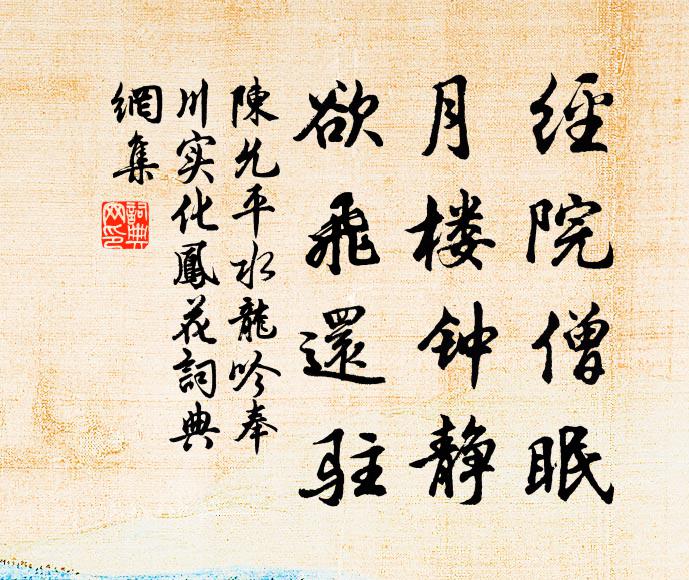 經院僧眠
月楼钟静
欲飛還駐
陳允平水龍吟奉
川实化鳳花詞典
網集
詞典网印